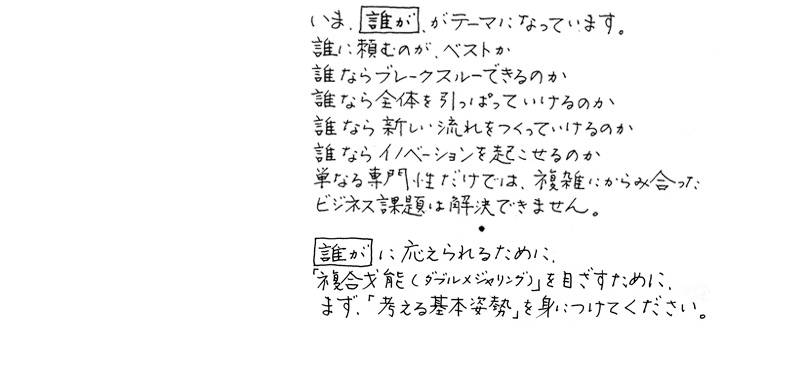 いま、誰が、がテーマになっています。
誰に頼むのが、ベストか
誰ならブレークスルーできるのか
誰なら全体を引っぱっていけるのか
誰なら新しい流れをつくっていけるのか
誰ならイノベーションを起こせるのか
単なる専門性だけでは、複雑にからみ合った
ビジネス課題は解決できません。
•
誰がに応えられるために、
「複合才能(ダブルメジャリング)」を目ざすために、
まず、「考える基本姿勢」を身につけてください。